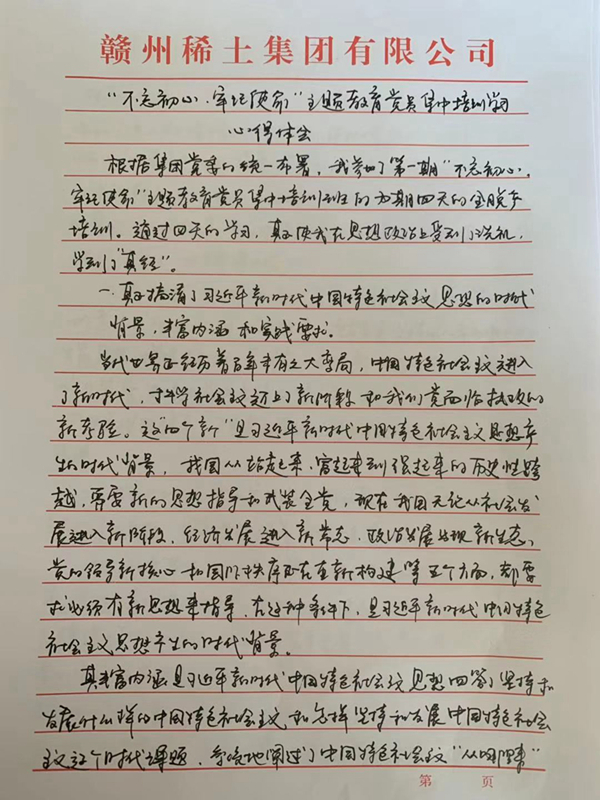 赣州稀土集团有限公司
"不忘初心、牢记使命"主题教育党员集中培训学习
心得体会
根据集团党委的统一布署,我参加了第一期"不忘初心、
牢记使命"主题教育党员集中培训班的为期四天的全脱产
培训。通过四天的学习,真正使我在思想政治上受到了洗礼,
学到了"真经"。
一、真正搞清了习近平新时代中国特色社会主义思想的时代
背景,丰富内涵和实践要求。
当代世界正经历着百年未有之大变局,中国特色社会主义进入
了新时代,科学社会主义迈上了新阶段和我们党面临执政的
新考验。这"四个新"是习近平新时代中国特色社会主义思想产
生的时代背景,我国从站起来、富起来到强起来的历史性跨
越,需要新的思想指导和武装全党,现在我国无论从社会发
展进入新阶段,经济发展进入新常态,政治发展出现新生态,
党的领导新核心和国际秩序正在重新构建等五个方面,都要
求必须有新思想来指导,在这种条件下,是习近平新时代中国特色
社会主义思想产生的时代背景。
其丰富内涵是习近平新时代中国特色社会主义思想回答了坚持和
发展什么样的中国特色社会主义和怎样坚持和发展中国特色社会
主义这个时代课题,系统地阐述了中国特色社会主义"从哪里来"
第 页